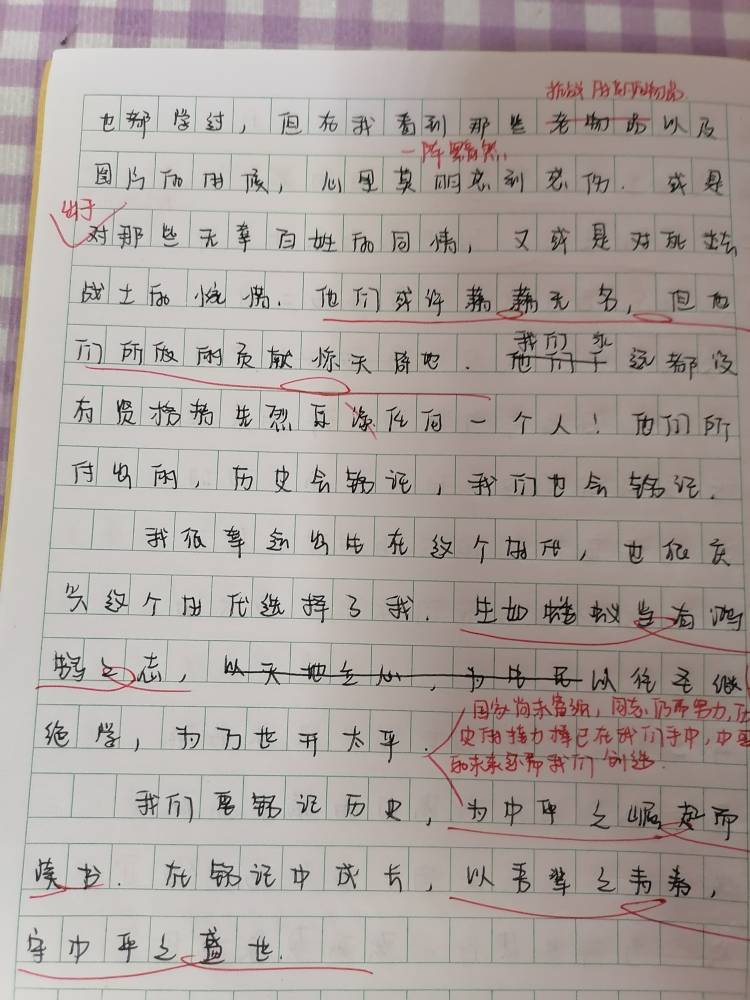 抗战时的旧物品
也都学过，但在我看到那些老物品以及
一阵黯然
图片的时候，心里莫明感到悲伤．或是
出于
对那些无辜百姓的同情，又或是对死去
战士的惋惜．他们或许藉藉无名，但他
们所做的贡献惊天辟地．我们永远都没
有贤格指先烈任何一个人！他们所
付出的，历史会铭记，我们也会铭记．
我很幸运出生在这个时代，也很庆
兴这个时代选择了我．生如蝼蚁当有鸿
之志，以天地立心，为生民以往圣继
绝学，为万世开太平．
国家尚未富强，同志仍需努力，历
史的接力棒已在我们手中，中国
的未来还需我们创造．
我们要铭记历史，为中华之崛起而
读书．在铭记中成长，以吾辈之青春，
守中华之盛世．